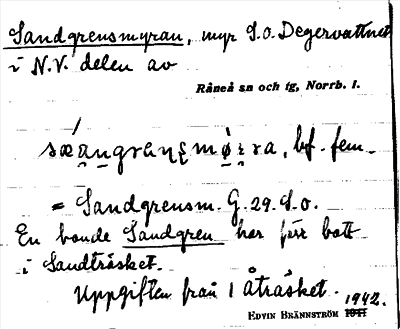 Sandgrensmyran, myr S.o. Degervattnet
i N.V. delen av
Råneå sn och tg, Norrb. l.
bf. fem.
= Sandgrensm. G. 29. S.o.
En bonde Sandgren har förr bott
i Sandträsket.
Uppgiften från 1 Åträsket. 1942.
EDVIN BRÄNNSTRÖM 1941